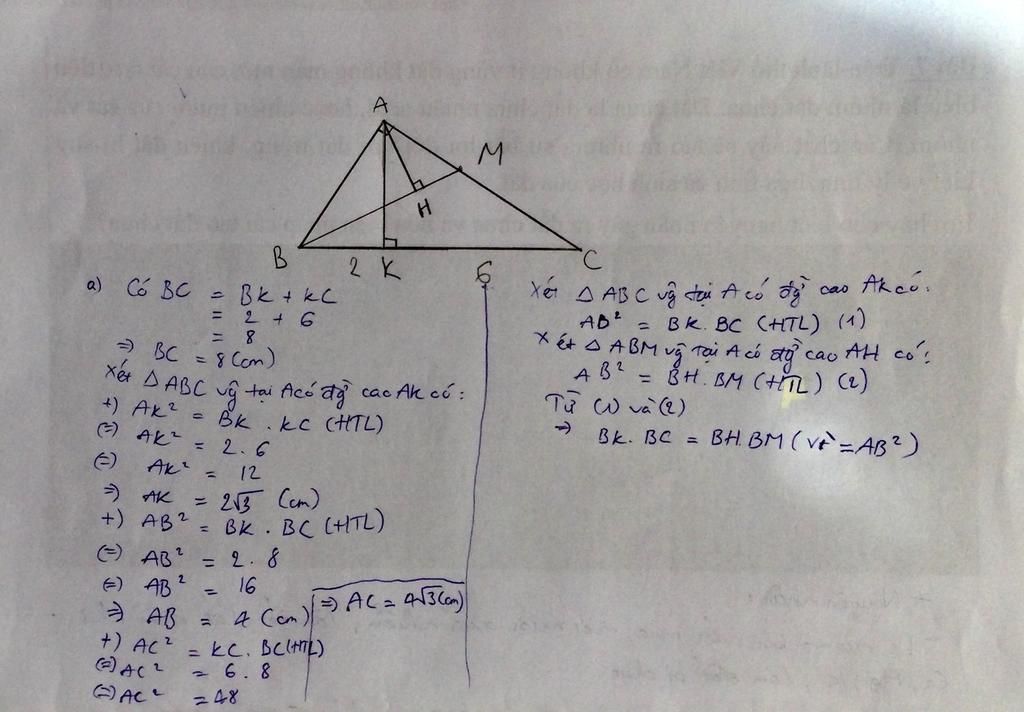 A
M
H
B
2
K
6
C
a) Có BC = BK + KC
= 2 + 6
= 8
⇒ BC = 8 (cm)
Xét △ ABC vg̃ tại A có đg̃ cao AK có:
+) AK² = BK . KC (HTL)
(=) AK² = 2 . 6
(=) AK² = 12
⇒ AK = 2√3 (cm)
+) AB² = BK . BC (HTL)
(=) AB² = 2 . 8
(=) AB² = 16
⇒ AB = 4 (cm)
+) AC² = KC . BC (HTL)
(=) AC² = 6 . 8
(=) AC² = 48
⇒ AC = 4√3 (cm)
Xét △ ABC vg̃ tại A có đg̃ cao AK có:
AB² = BK . BC (HTL) (1)
Xét △ ABM vg̃ tại A có đg̃ cao AH có:
AB² = BH . BM (HTL) (2)
Từ (1) và (2)
⇒ BK . BC = BH . BM (vì = AB²)